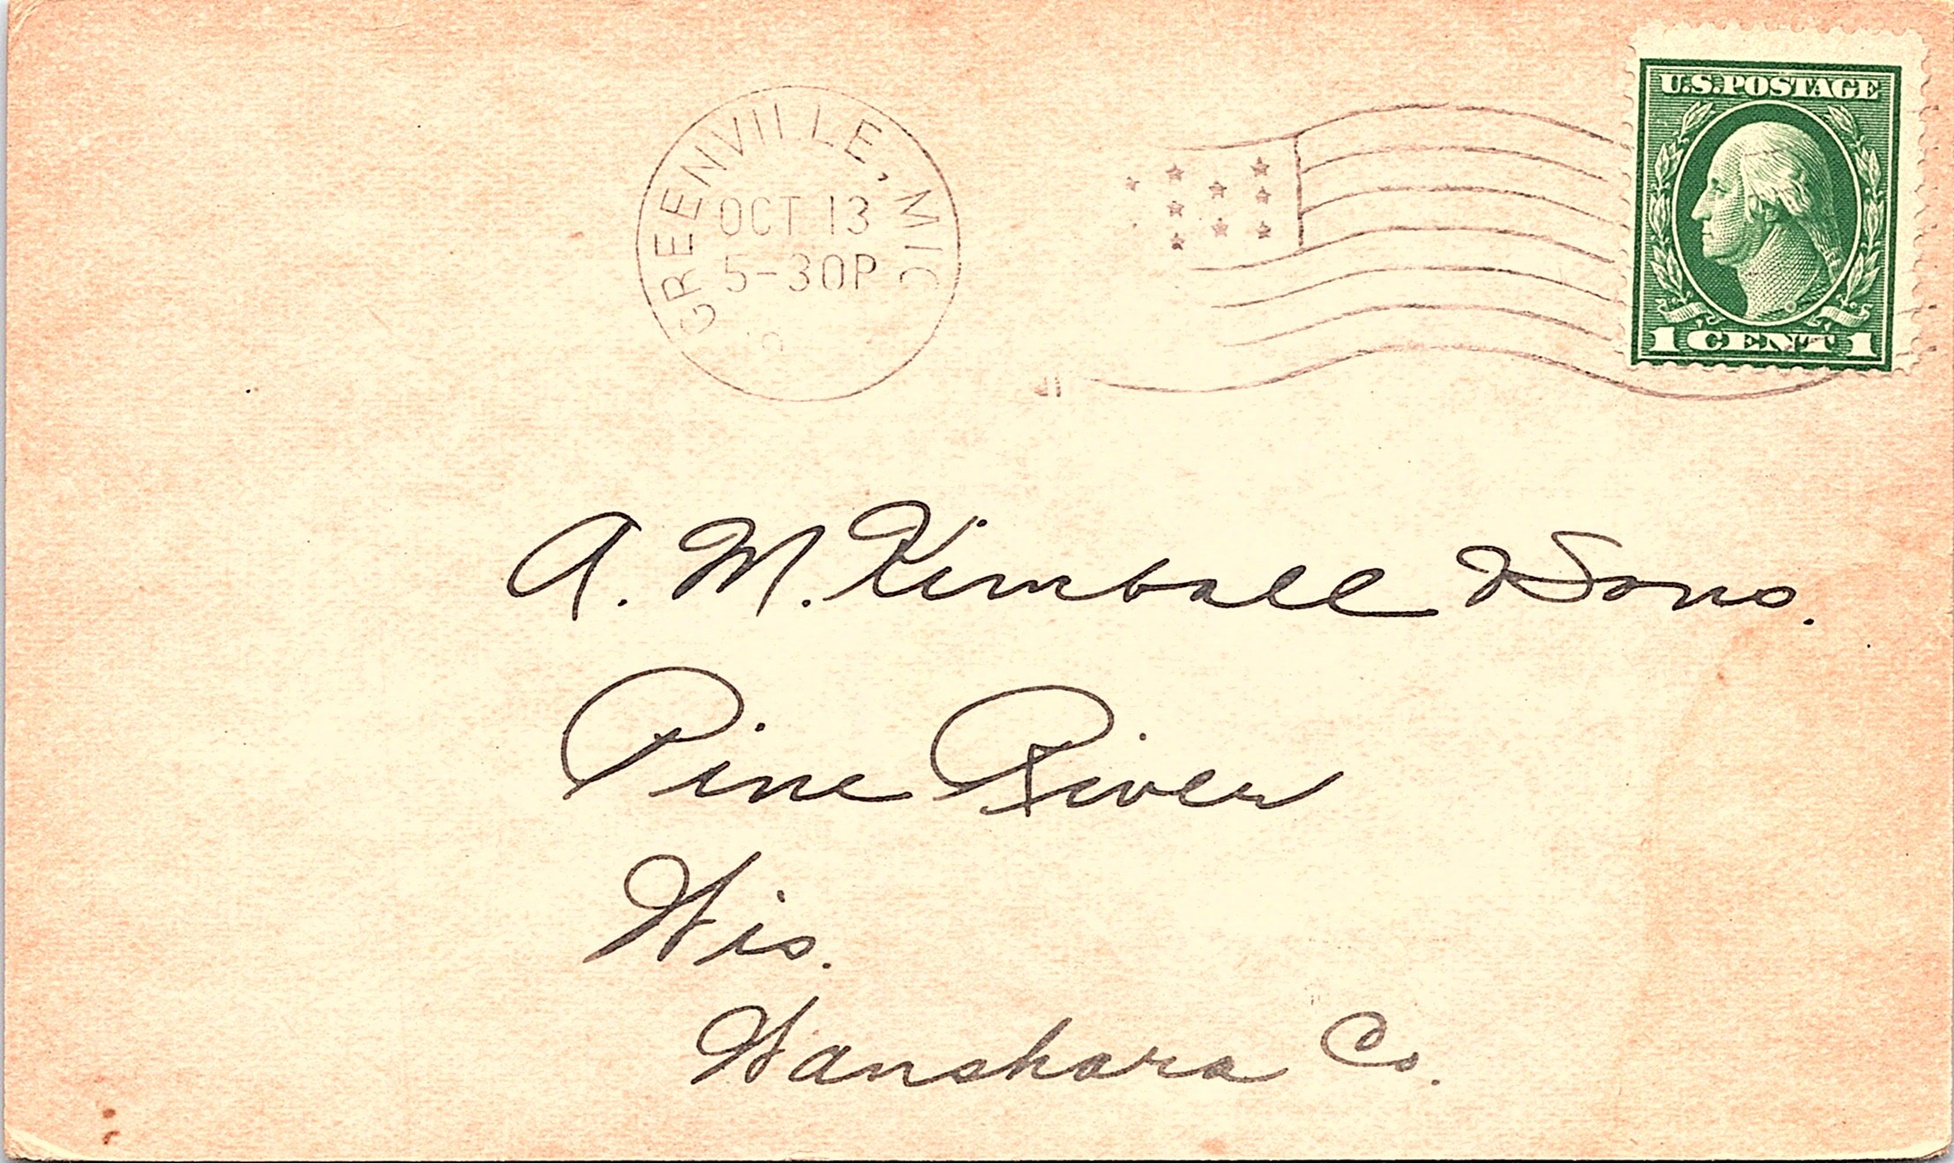 U.S. POSTAGE
1 CENT 1
GREENVILLE, MIC
OCT 13
5-30P
A. M. Kimball & Sons.
Pine River
Wis.
Wanshara Co.